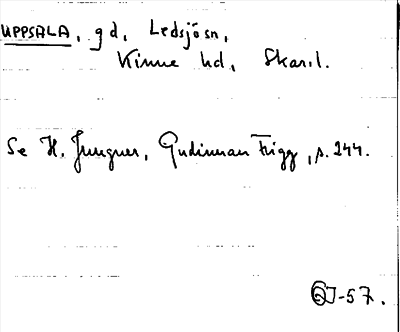 UPPSALA, gd, Ledsjö sn,
Kinne hd, Skarxl.
Se H. Jungner, Gudinnan Frigg, s. 244.
-57.